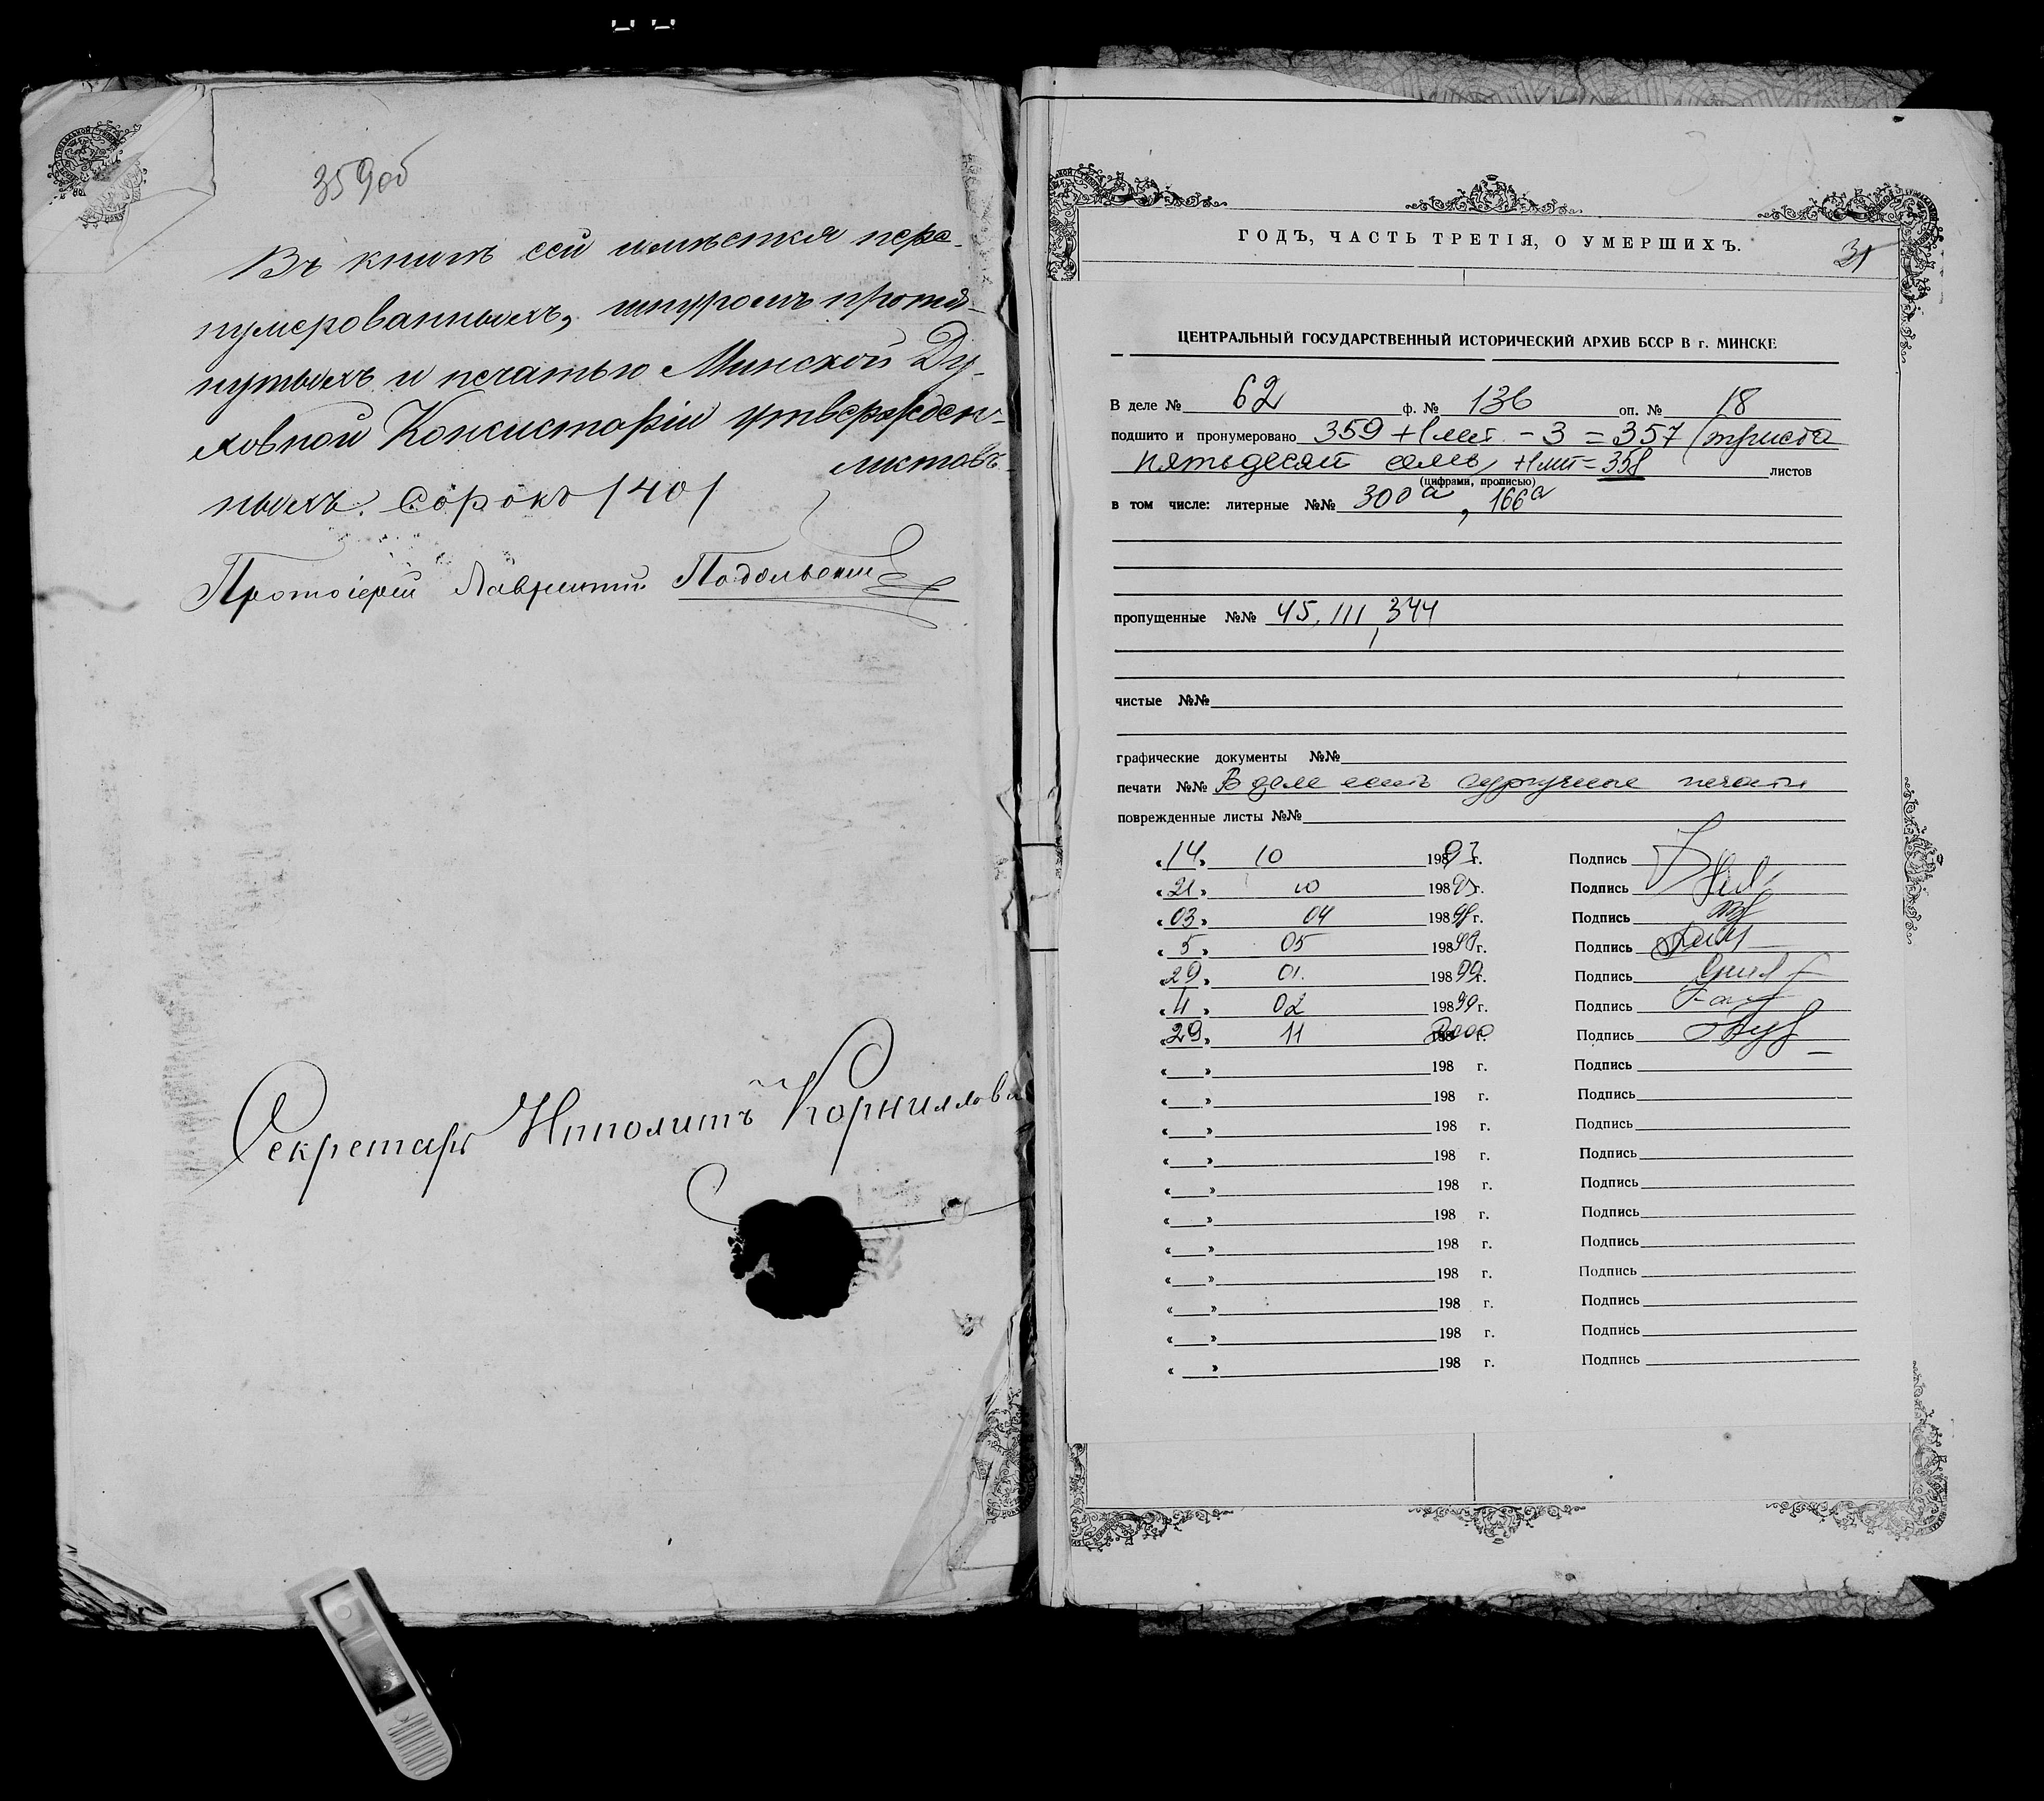 359об
Въ книгѣ сей имѣется пере-
нумерованныхъ, шнуромъ протя-
нутыхъ и печатью Минской Ду-
ховной Консисторіи утвержден-
листовъ
ныхъ. Сорокъ /40/
Протоіерей Лаврентій Подольскій
Секретарь Ипполитъ Корниллова
ГОДЪ, ЧАСТЬ ТРЕТІЯ, О УМЕРШИХЪ.
ЦЕНТРАЛЬНЫЙ ГОСУДАРСТВЕННЫЙ ИСТОРИЧЕСКИЙ АРХИВ БССР В г. МИНСКЕ
В деле № 62 ф. № 136 оп. № 18
подшито и пронумеровано 359 + 1 лит. - 3 = 357 (триста
пятьдесят семь, +1 лит = 358 листов
(цифрами, прописью)
в том числе: литерные №№ 300а, 166а
пропущенные №№ 45, 111, 344
чистые №№
графические документы №№
печати №№ В деле есть сургучные печати
поврежденные листы №№
«14» 10 1987 г. Подпись
«21» 10 198 г. Подпись
«03» 04 19898 г. Подпись
«5» 05 19898 г. Подпись
«29» 01. 19899 г. Подпись
«4» 02 19899 г. Подпись
«29» 11 2000 г. Подпись
« » 198 г. Подпись
« » 198 г. Подпись
« » 198 г. Подпись
« » 198 г. Подпись
« » 198 г. Подпись
« » 198 г. Подпись
« » 198 г. Подпись
« » 198 г. Подпись
« » 198 г. Подпись
« » 198 г. Подпись
« » 198 г. Подпись